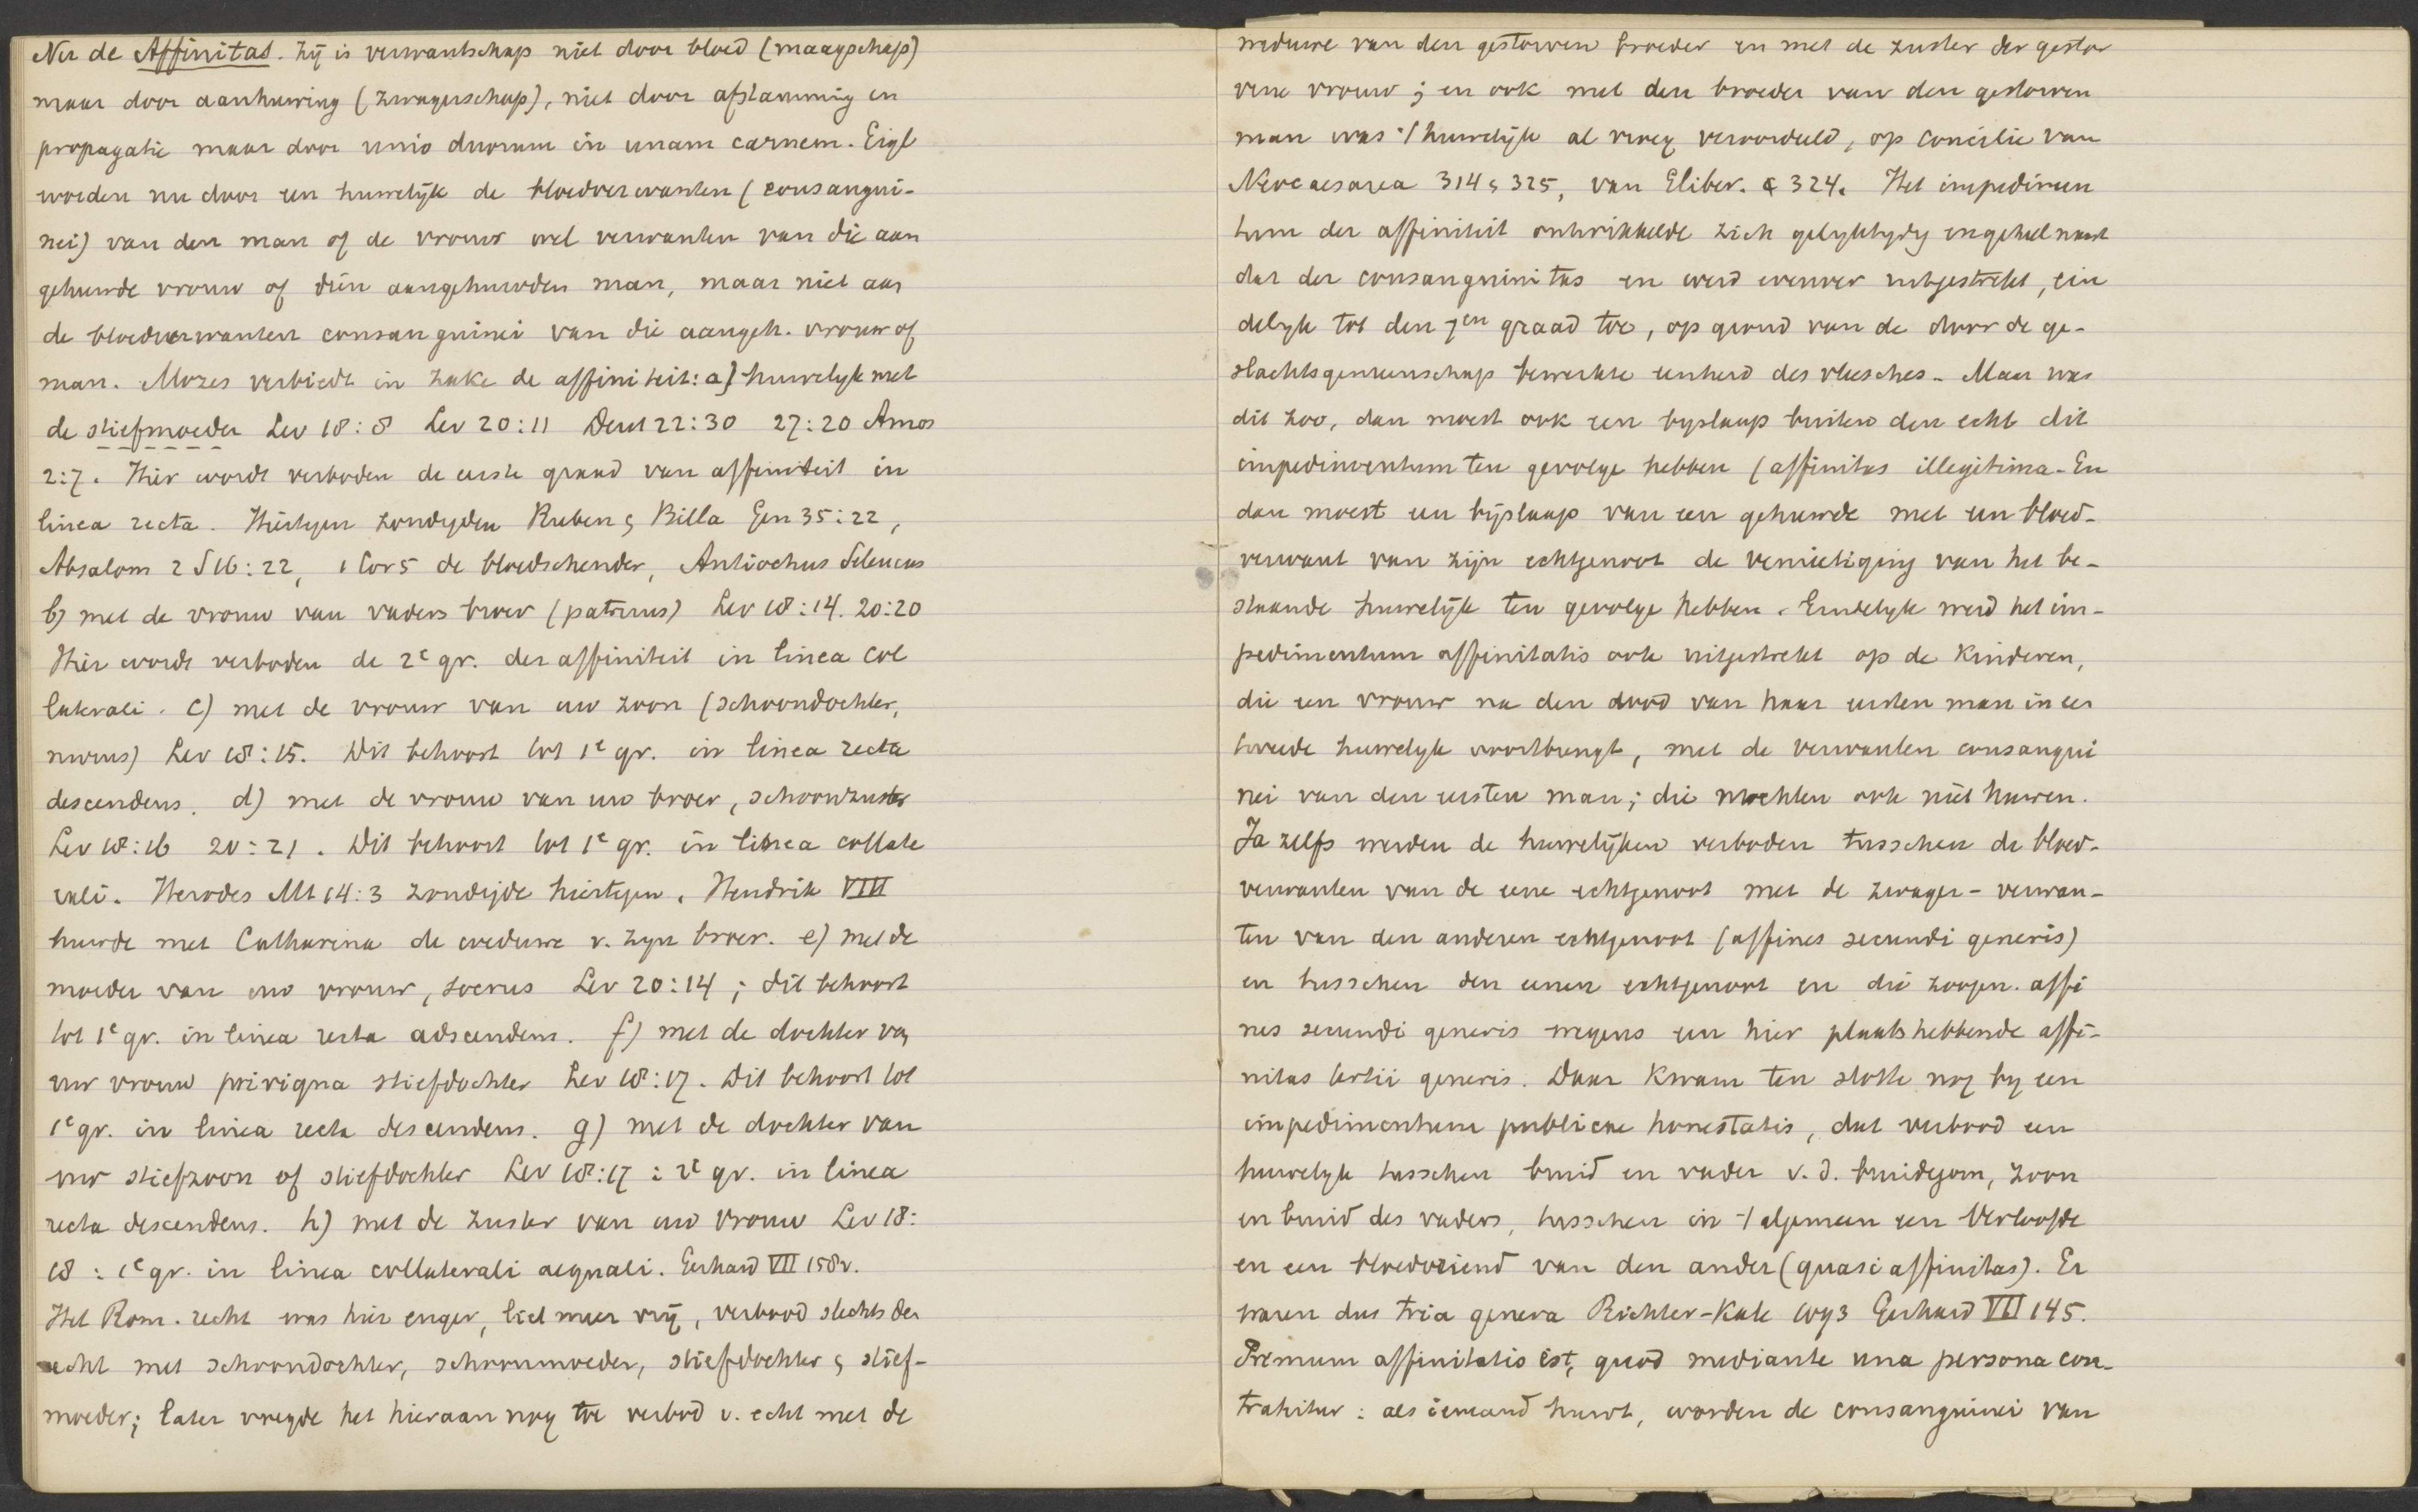 Nu de Affinitas. Zij is verwantschap niet door bloed (maagschap)
maar door aanhuwing (zwagerschap), niet door afstamming en
propagatie maar door unio duorum in unam carnem. Eigl
worden nu door een huwelijk de bloedverwanten (consangui-
nei) van den man of de vrouw wel verwanten van die aan
gehuwde vrouw of dien aangehuwden man, maar niet aan
de bloedverwanten consanguinei van die aangeh. vrouw of
man. Mozes verbiedt in zake de affiniteit: a) huwelyk met
de stiefmoeder Lev 18:8 Lev 20:11 Deut 22:30 27:20 Amos
2:7. Hier wordt verboden de eerste graad van affiniteit in
linea recta. Hiertegen zondigden Ruben & Billa Gen 35:22,
Absalom 2 S 16:22, 1 Cor 5 de bloedschender, Antiochus Seleucus
b) met de vrouw van vaders broer (patruus) Lev 18:14. 20:20
Hier wordt verboden de 2e gr. der affiniteit in linea col
laterali. c) met de vrouw van uw zoon (schoondochter,
nurus) Lev 18:15. Dit behoort tot 1e gr. in linea recta
descendens. d) met de vrouw van uw broer, schoonzuster
Lev 18:16 20:21. Dit behoort tot 1e gr. in linea collate
rali. Herodes Mt 14:3 zondigde hiertegen. Hendrik VIII
huwde met Catharina de weduwe v. zyn broer. e) met de
moeder van uw vrouw, socrus Lev 20:14; dit behoort
tot 1e gr. in linea recta adscendens. f) met de dochter van
uw vrouw privigna stiefdochter Lev 18:17. Dit behoort tot
1e gr. in linea recta descendens. g) met de dochter van
uw stiefzoon of stiefdochter Lev 18:17: 2e gr. in linea
recta descendens. h) met de zuster van uw vrouw Lev 18:
18: 1e gr. in linea collaterali aequali. Gerhard VII 158v.
Het Rom. recht was hier enger, liet meer vrij, verbood slechts den
echt met schoondochter, schoonmoeder, stiefdochter & stief-
moeder; later voegde het hieraan nog toe verbod v. echt met de
weduwe van den gestorven broeder en met de zuster der gestor
vene vrouw; en ook met den broeder van den gestorven
man was 't huwelijk al vroeg veroordeeld, op concilie van
Neocaesarea 314 & 325, van Eliber. 324. Het impedimen
tum der affiniteit ontwikkelde zich gelyktydig en geheel naast
dat der consanguinitas en werd evenver uitgestrekt, ein
delyk tot den 7en graad toe, op grond van de door de ge-
slachtsgemeenschap bewerkte eenheid des vleesches. Maar was
dit zoo, dan moest ook een byslaap buiten den echt dit
impedimentum ten gevolge hebben (affinitas illegitima. En
dan moest een bijslaap van een gehuwde met een bloed-
verwant van zijn echtgenoot de vernietiging van het be-
staande huwelijk ten gevolge hebben. Eindelyk werd het im-
pedimentum affinitatis ook uitgestrekt op de kinderen,
die een vrouw na den dood van haar eersten man in een
tweede huwelyk voortbrengt, met de verwanten consangui
nei van den eersten man; die mochten ook niet huwen.
Ja zelfs werden de huwelijken verboden tusschen de bloed-
verwanten van de eene echtgenoot met de zwager-verwan-
ten van den anderen echtgenoot (affines secundi generis)
en tusschen den eenen echtgenoot en die zoogen. affi
nes secundi generis wegens een hier plaatshebbende affi-
nitas tertii generis. Daar kwam ten slotte nog by een
impedimentum publicae honestatis, dat verbood een
huwelyk tusschen bruid en vader v. d. bruidegom, zoon
en bruid des vaders, tusschen in 't algemeen een verloofde
en een bloedvriend van den ander (quasi affinitas). Er
waren dus tria genera Richter-Kahl Gerhard VII 145.
Primum affinitatis est, quod mediante una persona con-
trahitur: als iemand huwt, worden de consanguinei van